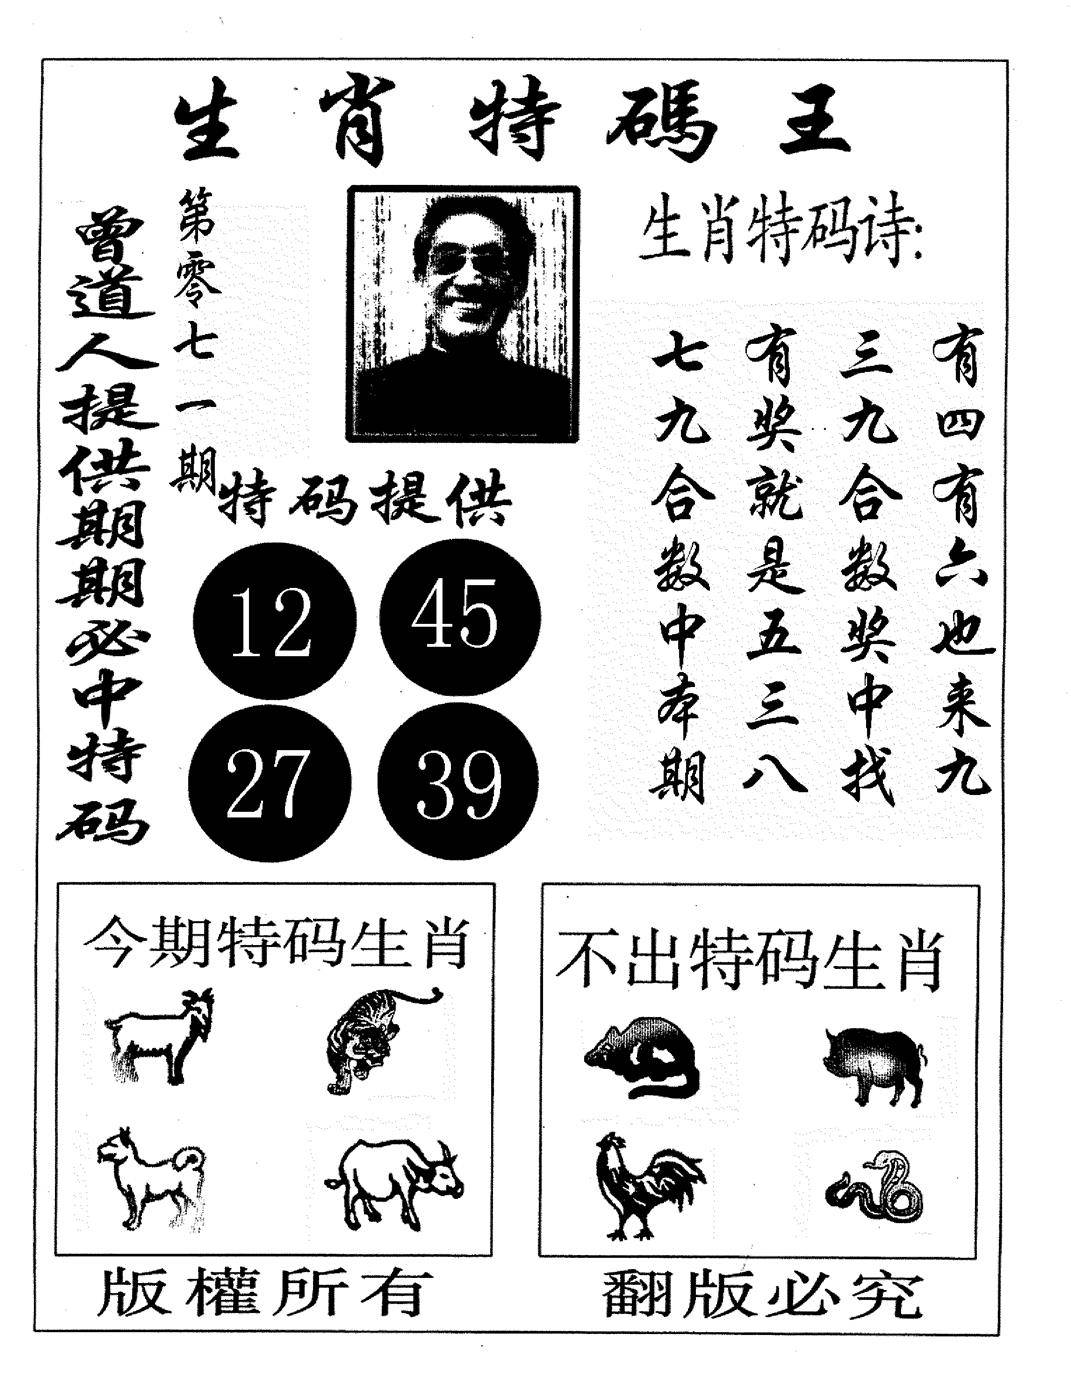 生肖特碼王
曾道人提供期期必中特码
第零七一期
特码提供
12 45
27 39
生肖特码诗:
有四有六也来九
三九合数奖中找
有奖就是五三八
七九合数中本期
今期特码生肖
不出特码生肖
版權所有
翻版必究